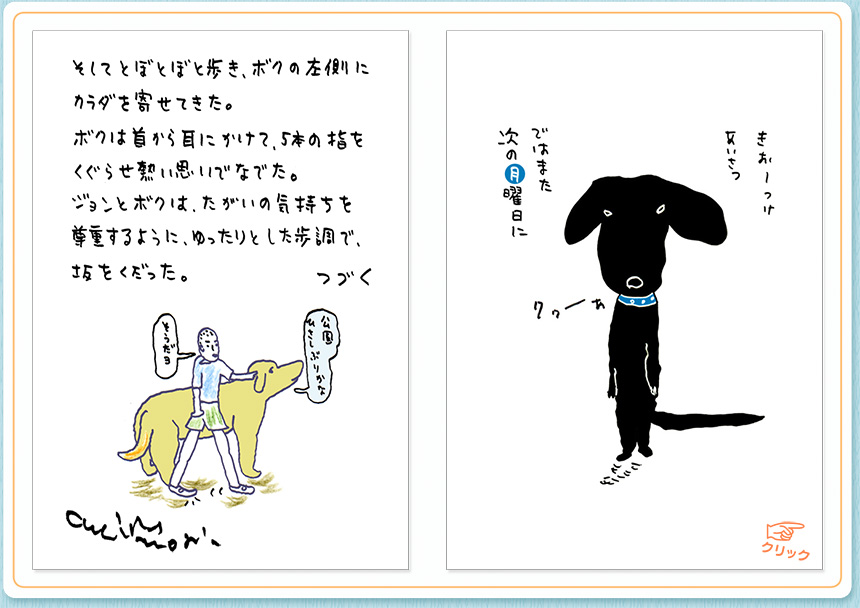 そしてとぼとぼと歩き、ボクの左側に
カラダを寄せてきた。
ボクは首から耳にかけて、5本の指を
くぐらせ熱い思いでなでた。
ジョンとボクは、たがいの気持ちを
尊重するように、ゆったりとした歩調で、
坂をくだった。
つづく
そうだヨ
公園
ひさしぶりかな
きおーつけ
あいさつ
ではまた
次の月曜日に
クリック